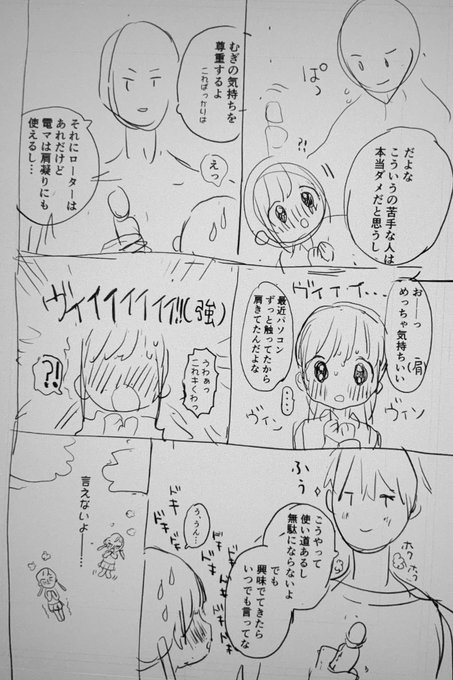 ぱっ
だよな
こういうの苦手な人は
本当ダメだと思うし
?!
むぎの気持ちを
尊重するよ
こればっかりは
えっ
それにローターは
あれだけど
電マは肩凝りにも
使えるし…
ヴイイイ…
おーーっ
めっちゃ気持ちいい
(肩)
最近パソコン
ずっと触ってたから
肩きてたんだよな
…
ヴィン
ヴィン
ヴイイイイイイイ!!!(強)
うわぁっ
これキくわっ
?!
ふぅ
こうやって
使い道あるし
無駄にならないよ
でも
興味でてきたら
いつでも言ってな
ホク
ホク
う、うん…
ドキ
ドキ
ドキ
ドキ
ドキ
ドキ
言えないよーー